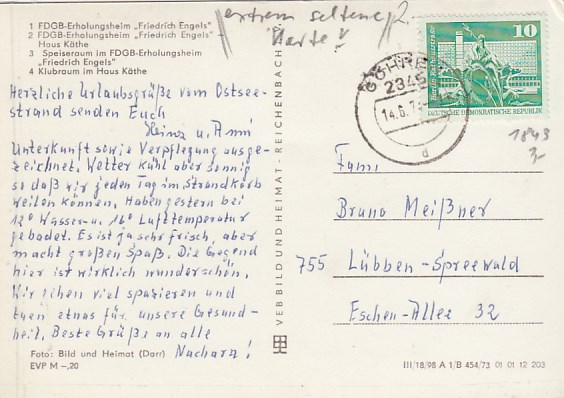 1 FDGB-Erholungsheim „Friedrich Engels"
2 FDGB-Erholungsheim „Friedrich Engels"
Haus Käthe
3 Speiseraum im FDGB-Erholungsheim
„Friedrich Engels"
4 Klubraum im Haus Käthe
extrem seltene
Karte!
Herzliche Urlaubsgrüße vom Ostsee-
strand senden Euch
Heinz u. Ami
Unterkunft sowie Verpflegung ausge-
zeichnet. Wetter kühl aber sonnig
so daß wir jeden Tag im Strandkorb
weilen können. Haben gestern bei
12° Wasser- u. 16° Lufttemperatur
gebadet. Es ist ja sehr frisch, aber
macht großen Spaß. Die Gegend
hier ist wirklich wunderschön.
Wir gehen viel spazieren und
tuen etwas für unsere Gesund-
heit. Beste Grüße an alle
Nacharn!
Foto: Bild und Heimat (Darr)
EVP M –,20
VEB BILD UND HEIMAT · REICHENBACH
10
DEUTSCHE DEMOKRATISCHE REPUBLIK
GÖHREN
2345
14.6.7
a
1843
3,-
Fam.
Bruno Meißner
755 Lübben-Spreewald
Eschen-Allee 32
III/18/98 A 1/B 454/73 01 01 12 203